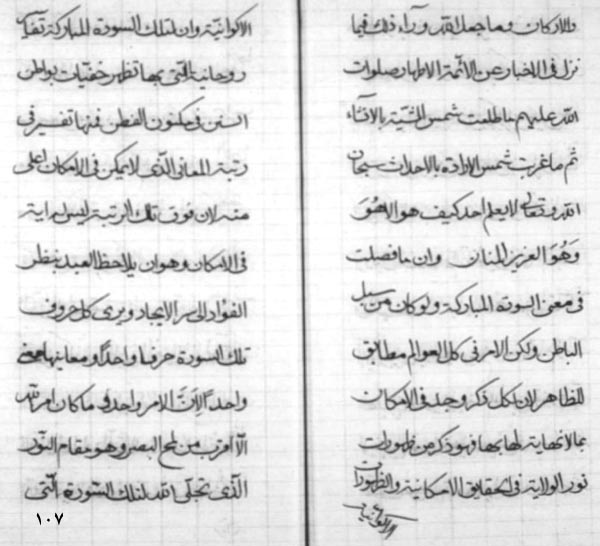 والاركان وما جعل الله وراء ذلك فيما
نزل فی الاخبار عن الائمة الاطهار صلوات
الله عليهم ما طلعت شمس المشية بالانشاء
ثم ما غربت شمس الارادة بالاحداث سبحان
الله وتعالى لا يعلم احد كيف هو الا هُوَ
وَهُوَ العزيز المنان وان ما فصلت
فی معنی السورة المباركة ولو كان من سبيل
الباطن ولكن الامر فی كل العوالم مطابق
للظاهر لان لكل ذكر وجد فی الامكان
بما لا نهاية لها بها فهو ذكر من ظهورات
نور الولاية فی الحقايق الامكانية والظهورات
الاكوانية
الاكوانية وان لتلك السورة المباركة
روحانية التی بها تظهر خفيات بواطن
السنن فی مكنون الفطن فمنها تفسير فی
رتبة المعانی الذی لا يمكن فی الامكان اعلی
منه لان فوق تلك الرتبة ليس له اية
فی الامكان وهو ان يلاحظ العبد بنظر
الفؤاد الی سر الايجاد ويری كل حروف
تلك السورة حرفا واحداً ومعانيها معنی
واحداً لِاَنَّ الامر واحد و ما كان امر الله
الا اقرب من لمح البصر وهو مقام النور
الذی تجلی الله لتلك السورة التی
١٠٧